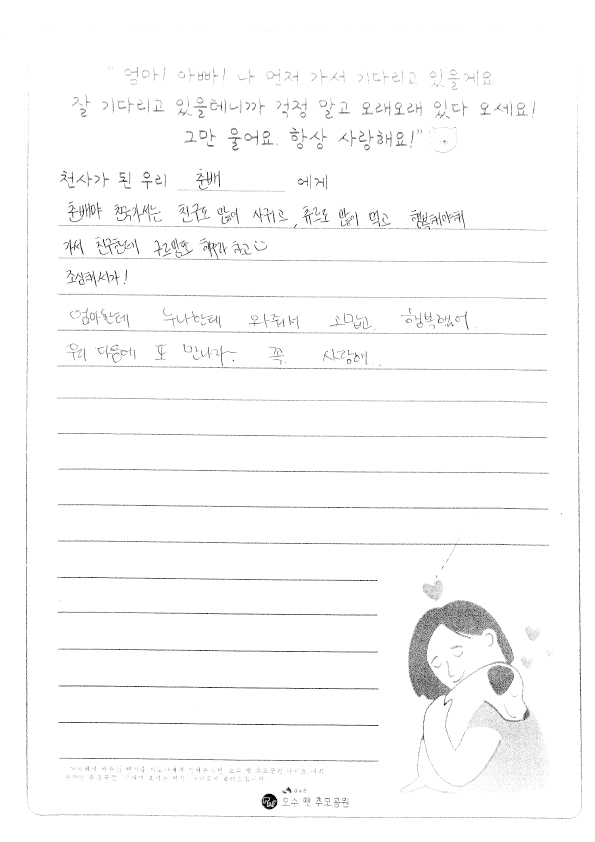 "엄마! 아빠! 나 먼저 가서 기다리고 있을게요
잘 기다리고 있을테니까 걱정 말고 오래오래 있다 오세요!
그만 울어요. 항상 사랑해요!"
천사가 된 우리 춘배 에게
춘배야 천국가서는 친구도 많이 사귀고, 츄르도 많이 먹고 행복해야해
가서 친구한테 하고
조심해서가!
엄마한테 누나한테 와줘서 고맙고 행복했어.
우리 다음에 또 만나자~ 꼭. 사랑해..
오수 펫 추모공원